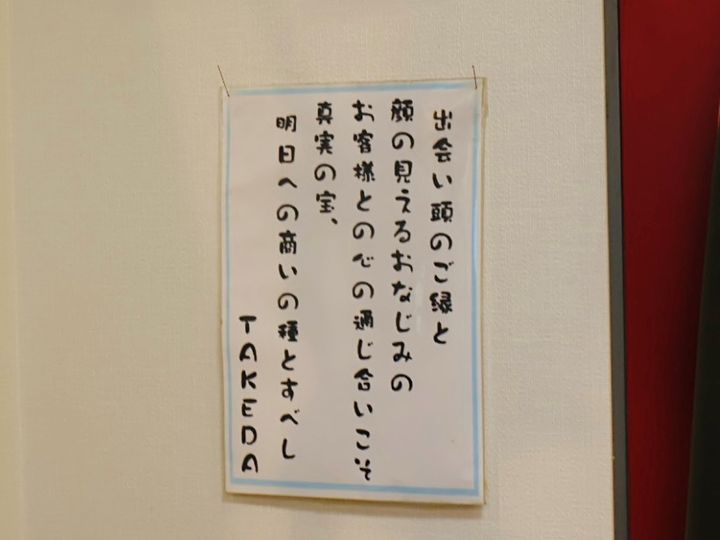 出会い頭のご縁と
顔の見えるおなじみの
お客様との心の通じ合いこそ
真実の宝、
明日への商いの種とすべし
TAKEDA